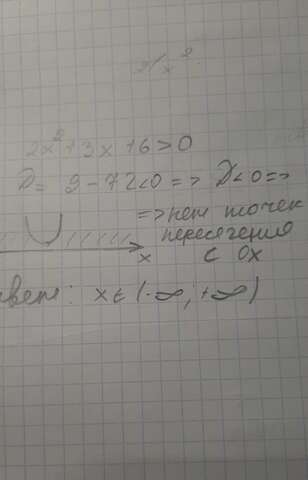 2x²+3x+6>0
D= 9-72<0 => D<0 =>
=> нет точек
пересечения
x с Ox
ответ: x∈(-∞;+∞)